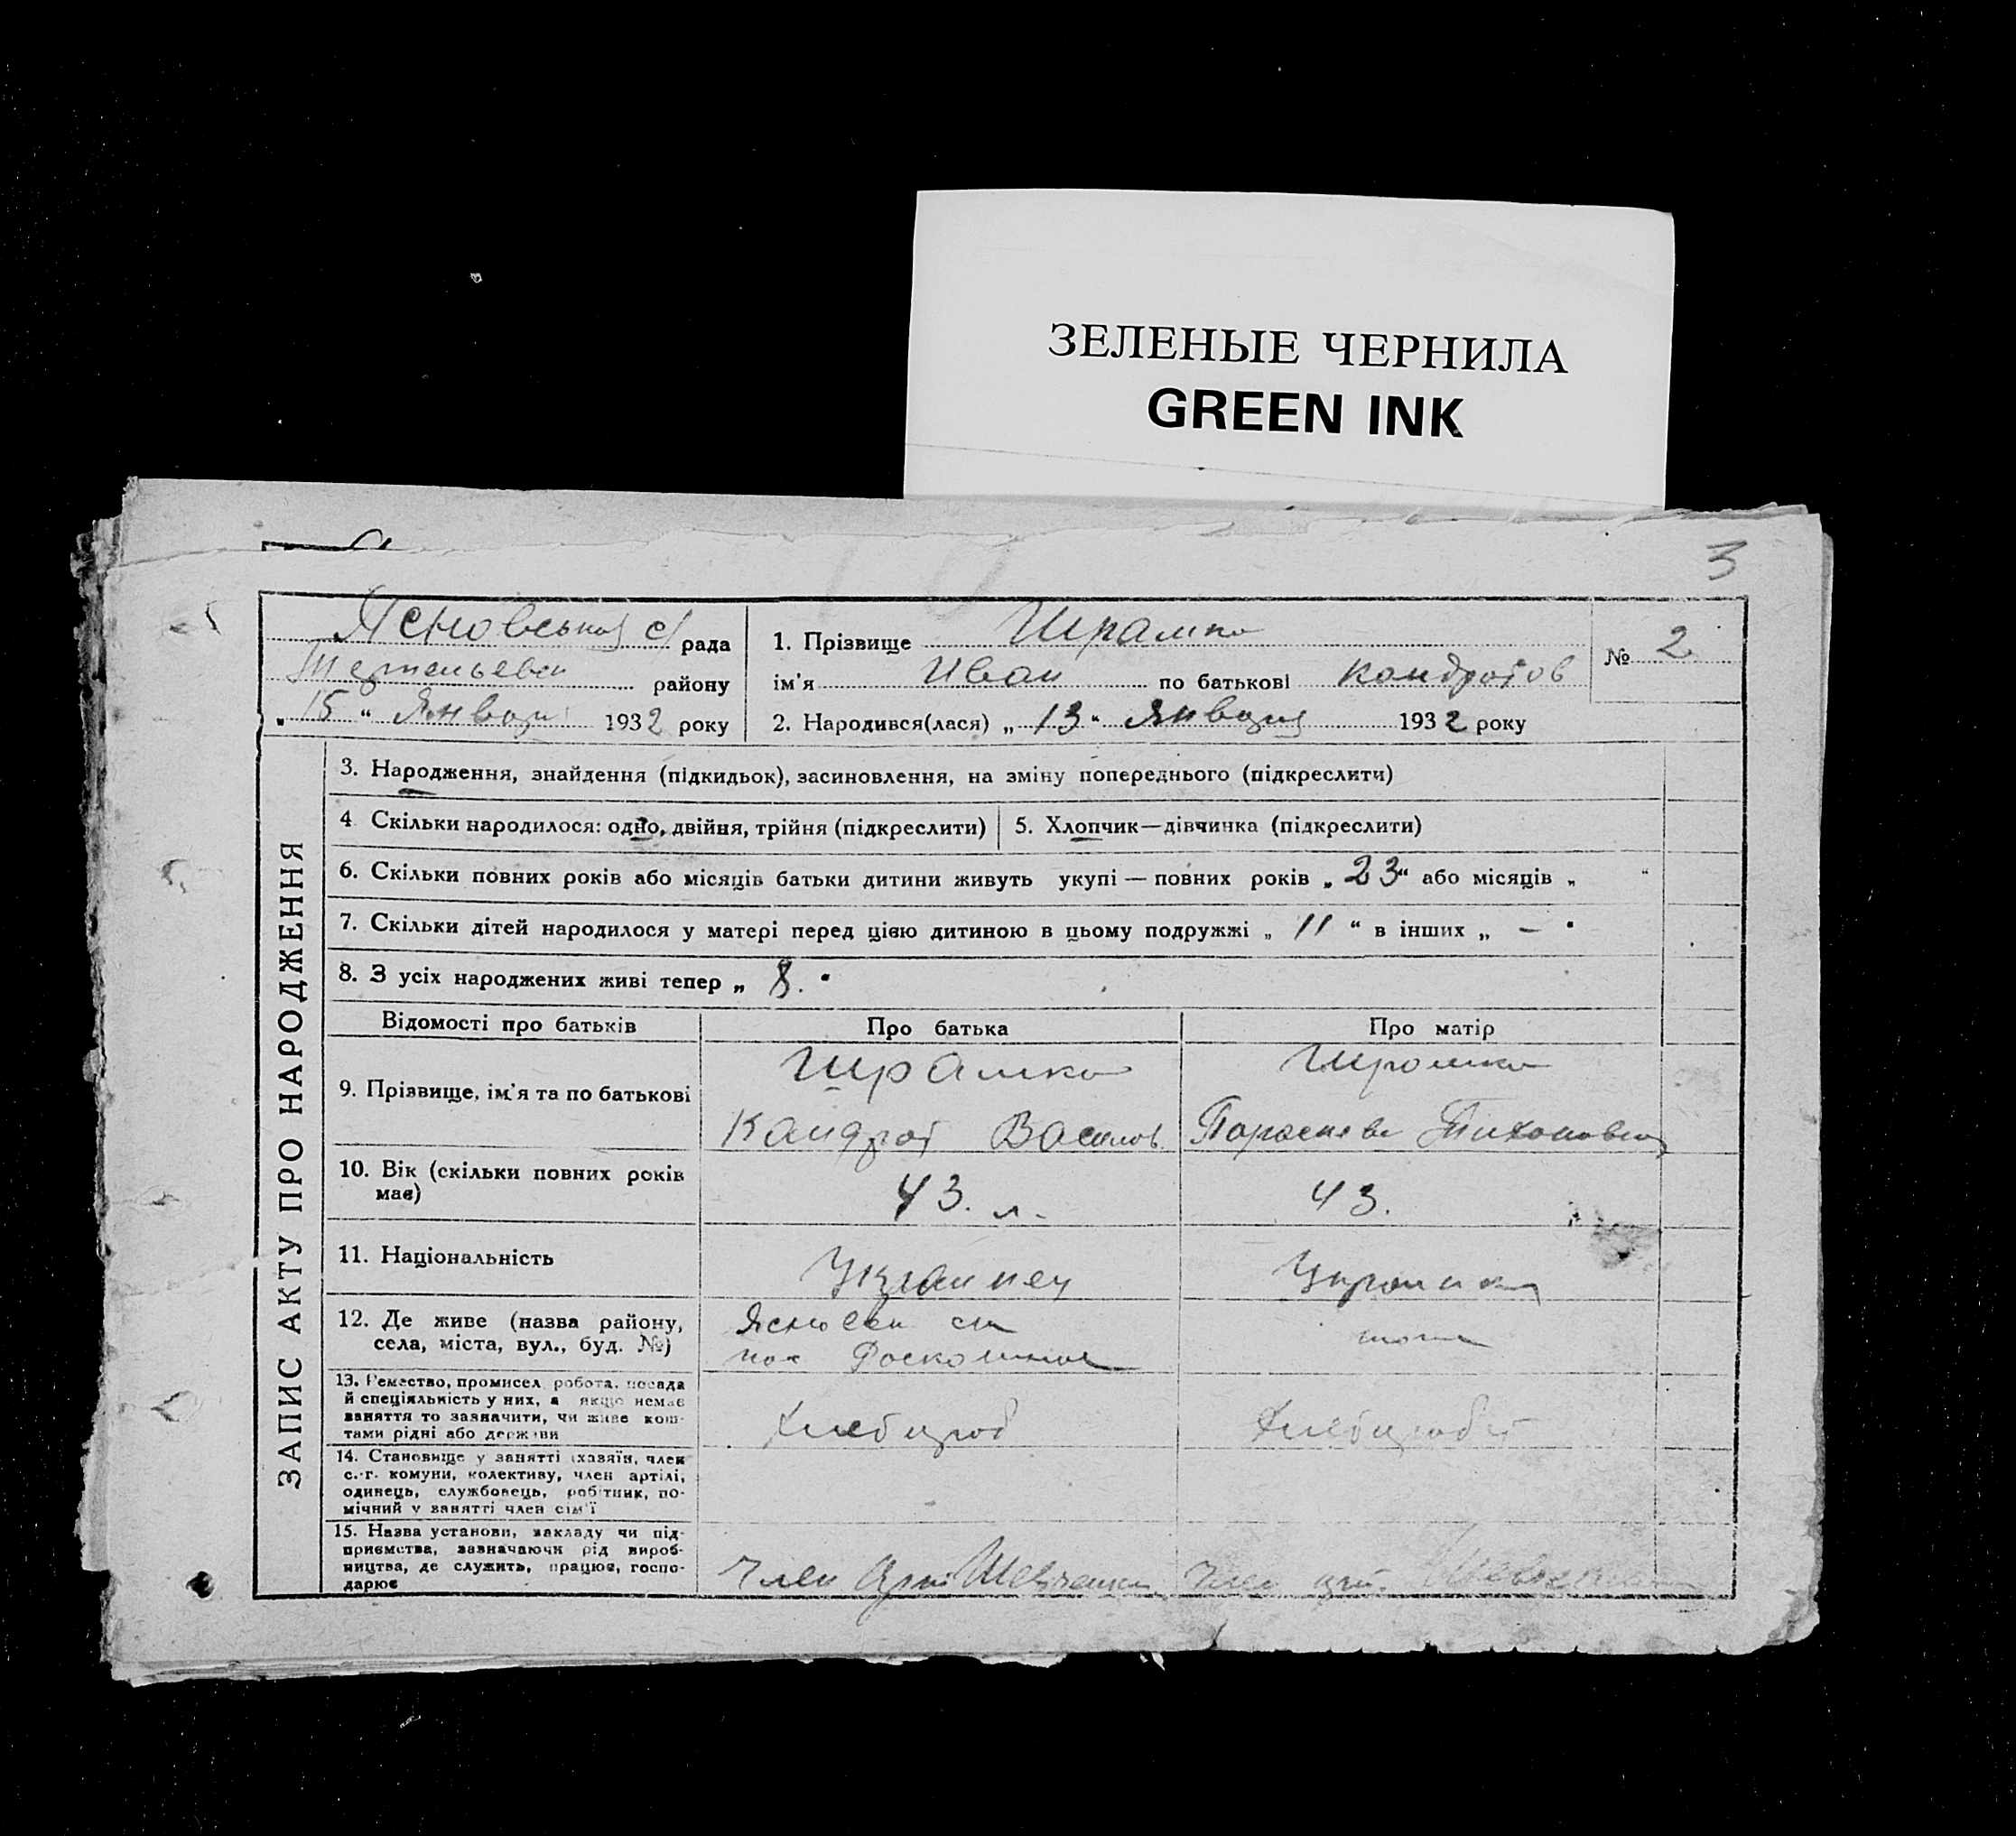 ЗЕЛЕНЫЕ ЧЕРНИЛА
GREEN INK
3
Ясновской с/рада
району
„15“ Января 1932 року
1. Прізвище Шрамко
ім'я Иван по батькові Кондратов
№ 2
2. Народився(лася) „13“ Января 1932 року
ЗАПИС АКТУ ПРО НАРОДЖЕННЯ
3. Народження, знайдення (підкидьок), засиновлення, на зміну попереднього (підкреслити)
4 Скільки народилося: одно, двійня, трійня (підкреслити)
5. Хлопчик—дівчинка (підкреслити)
6. Скільки повних років або місяців батьки дитини живуть укупі — повних років „23“ або місяців „ “
7. Скільки дітей народилося у матері перед цією дитиною в цьому подружжі „11“ в інших „ — "
8. З усіх народжених живі тепер „8. "
Відомості про батьків
Про батька
Про матір
9. Прізвище, ім'я та по батькові
Шрамко
Кондрат Васил.
Шрамко
Параскева Тихоновна
10. Вік (скільки повних років
має)
43. л.
43.
11. Національність
Украинец
Украинка
12. Де живе (назва району,
села, міста, вул., буд. №)
пос Роскошное
тоже
13. Ремество, промисел, робота, посада
й спеціяльність у них, а якщо немає
заняття то зазначити, чи живе кош-
тами рідні або держави
Хлебороб
14. Становище у занятті (хазяїн, член
с.-г. комуни, колективу, член артілі,
одинець, службовець, робітник, по-
мічний у занятті член сім'ї
15. Назва установи, закладу чи під-
приємства, зазначаючи рід вироб-
ництва, де служить, працює, госпо-
дарює
Член Арт Шевченка
Член арт. Шевченка